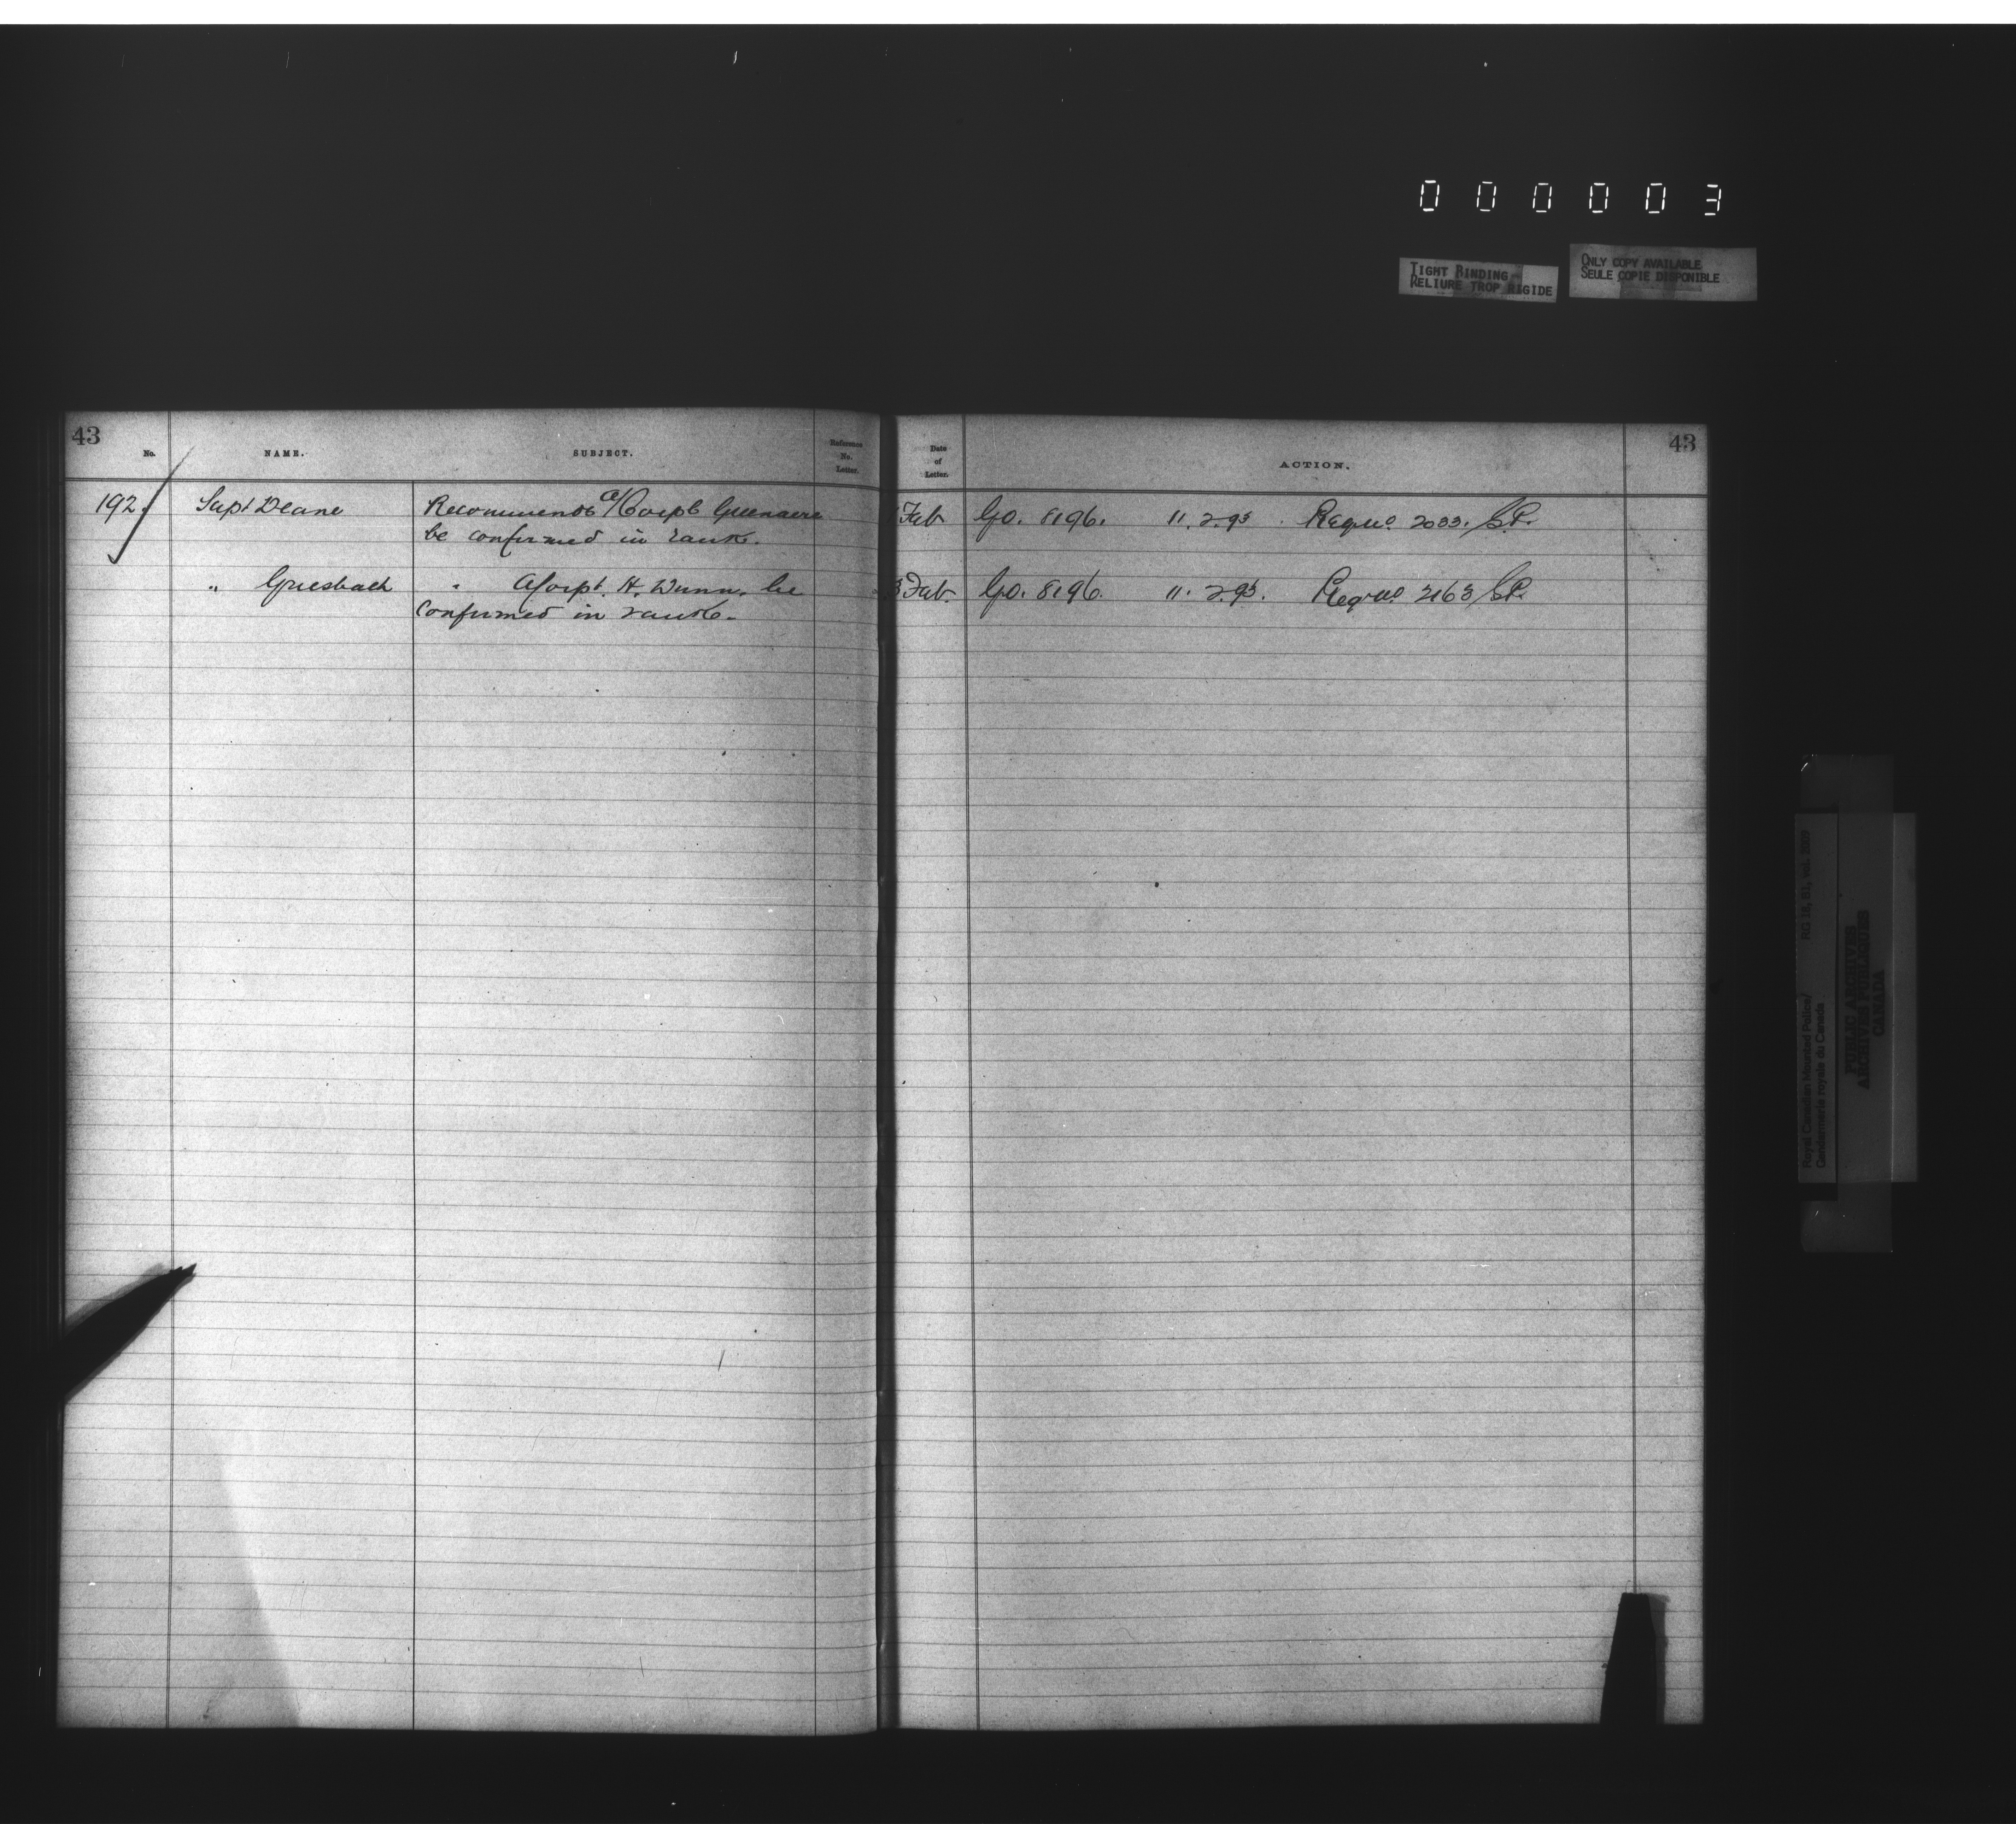 000003
TIGHT BINDING
RELIURE TROP RIGIDE
ONLY COPY AVAILABLE
SEULE COPIE DISPONIBLE
43
No. NAME. SUBJECT. Reference No. Letter.
192. Supt Deane Recommends a/Corpl Greenacre
be confirmed in rank.
" Griesbach " A/Corpl. H. Dunn. be
confirmed in rank.
43
Date of Letter. ACTION.
Feb. G.O. 8196. 11.2.95. Regtl No. 2033. S.P.
3 Feb. G.O. 8196. 11.2.95. Regtl No. 2163 S.P.
Royal Canadian Mounted Police/ RG 18, B1, vol.
Gendarmerie royale du Canada
PUBLIC ARCHIVES
ARCHIVES PUBLIQUES
CANADA